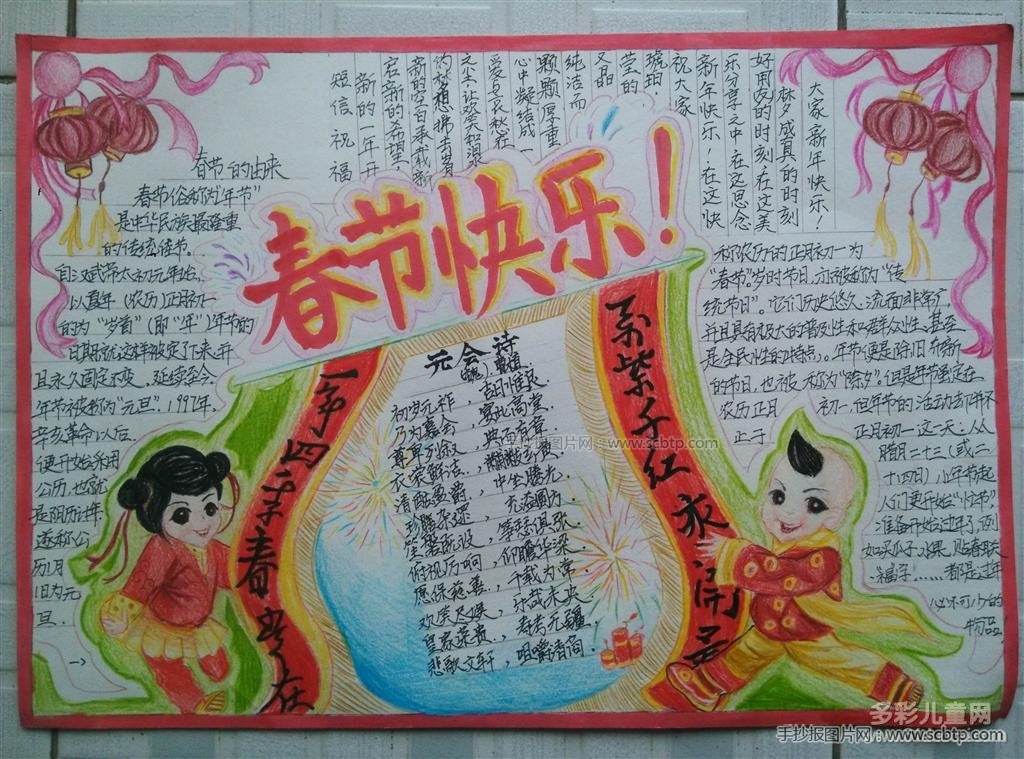 春节快乐！
大家新年快乐！
梦成真的时刻
好朋友的时刻,在这美
乐分享之中,在这思念
新年快乐！在这快
祝大家
琥珀
莹的
又晶
纯洁而
颗颗厚重
心中凝结成一
新的一年开
短信祝福
春节的由来
春节俗称为“年节”
是中华民族最隆重
的传统佳节。
自汉武帝太初元年始,
以夏年（农历）正月初一
的为“岁首”（即“年”）,年节的
日期就这样被定了下来,并
且永久固定不变，延续至今。
年节被称为“元旦”.1997年,
辛亥革命以后.
便开始采用
公历,也就
是阳历计年.
遂称公
历1月
1日为元
旦．
一年四季春常在
万紫千红永开花
元会诗
初岁元祚,吉日惟良.
乃为嘉会,宴此高堂.
尊卑列叙,典而有章.
衣裳鲜洁,黼黻玄黄.
清酤盈爵,中坐腾光.
珍膳杂遝,充溢圆方.
笙磬既设,筝瑟俱张.
俯视历响,仰瞻华梁.
愿保兹善,千载为常.
欢笑尽娱,乐哉未央.
皇家荣贵,寿考无疆.
悲歌文轩,咀嚼者间.
称农历的正月初一为
“春节”。岁时节日,亦被称为“传
统节日”。它们历史悠久、流面非常广,
并且具有极大的普及性和群众性、甚至
是全民性的特点。年节便是除旧布新
的节日,也被称为“除夕”。但是年节虽定在
农历正月初一,但年节的活动却并不
止于正月初一这一天.从
腊月二十三（或二
十四日）小年节起
人们更开始“忙年”,
准备开始过年了,例
如买瓜子,水果,贴春联
“福字”......都是过年
必不可少的
物品
手抄报图片网：www.scbtp.com
多彩儿童网
手抄报图片网：www.scbtp.com